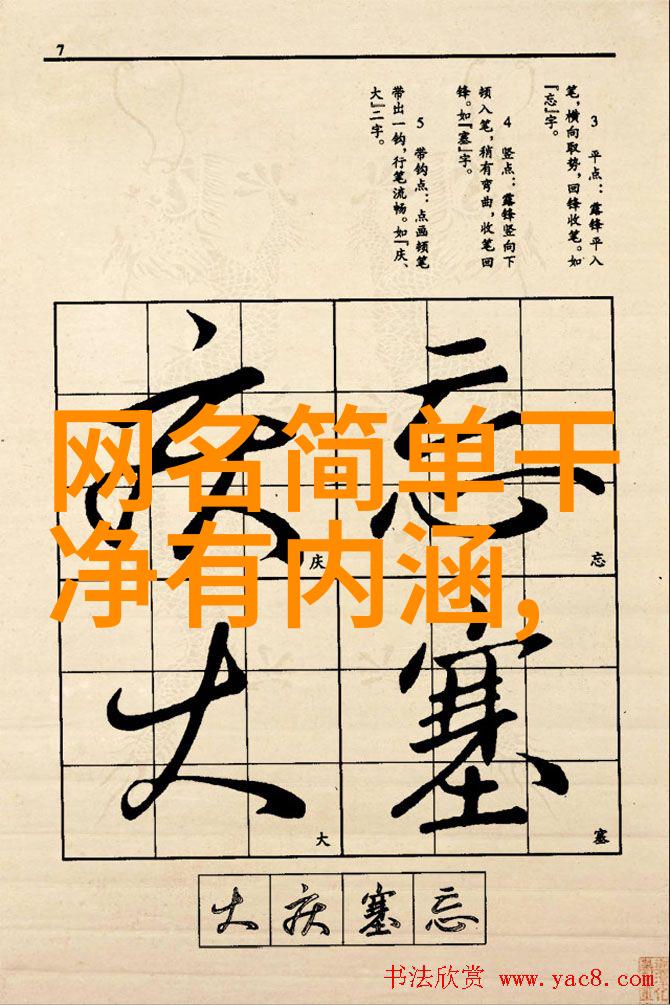 7
3　平点：露锋平入
笔，横向取势，回锋收笔。如
『忘』字。
4　竖点：露锋竖向下
顿入笔，稍有弯曲，收笔回
锋。如『塞』字。
5　带钩点：点画顿笔
带出一钩，行笔流畅。如『庆、
大』二字。
网名简单干
净有内涵，
庆 忘
庆 忘
大 塞
大 塞
大 庆 塞 忘
书法欣赏 www.yac8.com